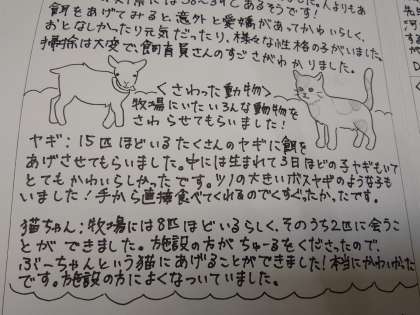 餌をあげてみると意外と愛嬌があってかわいらしく、
おとなしかったり元気だったり、様々な性格の子がいました。
掃除は大変で、飼育員さんのすごさがわかりました。
＜さわった動物＞
牧場にいたいろんな動物を
さわらせてもらいました！
ヤギ：15匹ほどいるたくさんのヤギに餌を
あげさせてもらいました。中には生まれて3日ほどの子ヤギもいて
とてもかわいらしかったです。ツノの大きいボスヤギのような子も
いました！手から直接食べてくれるのでくすぐったかったです。
猫ちゃん：牧場には8匹ほどいるらしく、そのうち2匹に会うこ
とができました。施設の方がちゅーるをくださったので、
ぶーちゃんという猫にあげることができました！本当にかわいかった
です。施設の方によくなついていました。